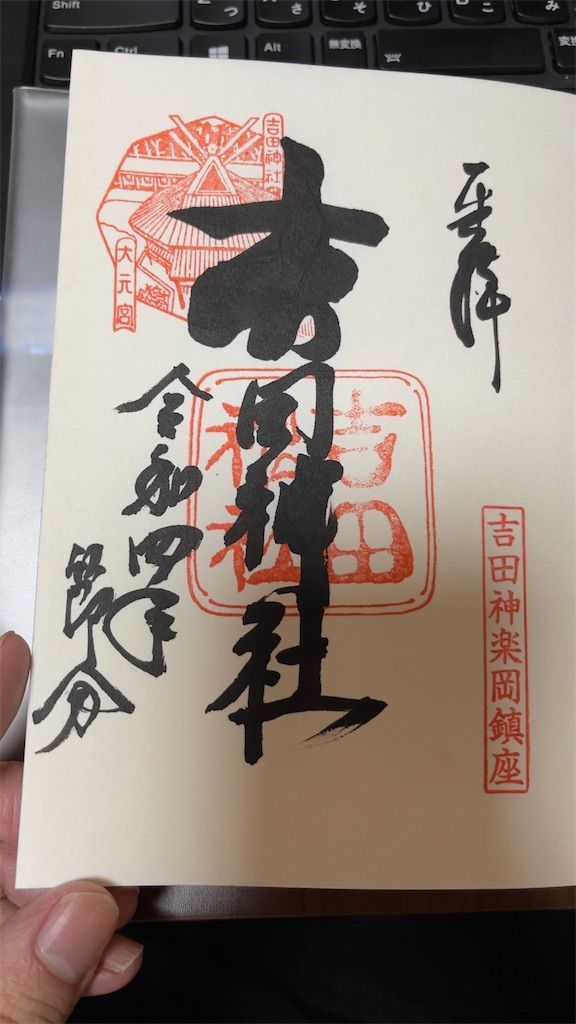 奉拝
吉田神楽岡鎮座
吉田神社
吉田
神社
吉田神社
大元宮
令和四年
節分
Shift
Fn
Ctrl
Alt
無変換
変換
つ
さ
そ
ひ
こ
み